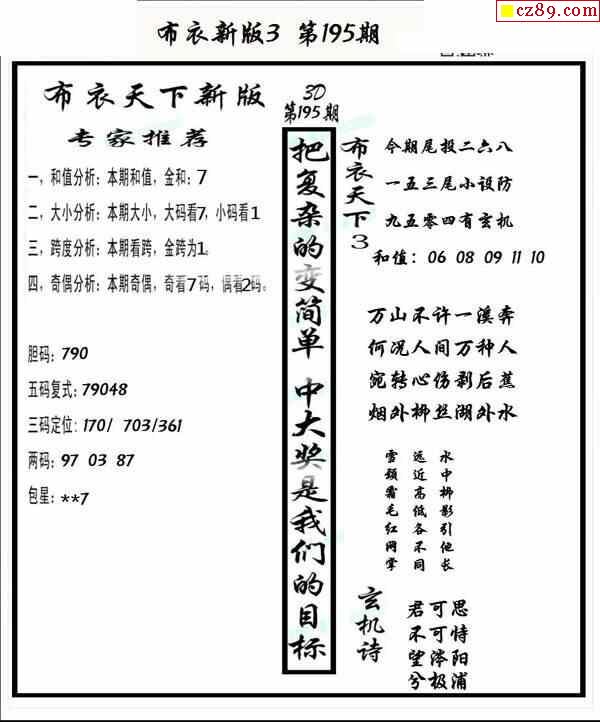 cz89.com
布衣新版3 第195期
布衣天下新版
专家推荐
一，和值分析：本期和值，金和：7
二，大小分析：本期大小，大码看7，小码看1
三，跨度分析：本期看跨，金跨为1。
四，奇偶分析：本期奇偶，奇看7码，偶看2码。
胆码：790
五码复式：79048
三码定位：170/ 703/361
两码：97 03 87
包星：**7
3D
第195期
把复杂的变简单 中大奖是我们的目标
布衣天下3
今期尾投二六八
一五三尾小设防
九五零四有玄机
和值：06 08 09 11 10
万山不许一溪奔
何况人间万种人
宛转心伤剥后蕉
烟外柳丝湖外水
雪 远 水
颈 近 中
霜 高 柳
毛 低 影
红 各 引
网 不 他
掌 同 长
玄机诗
君可思
不可恃
望涔阳
兮极浦